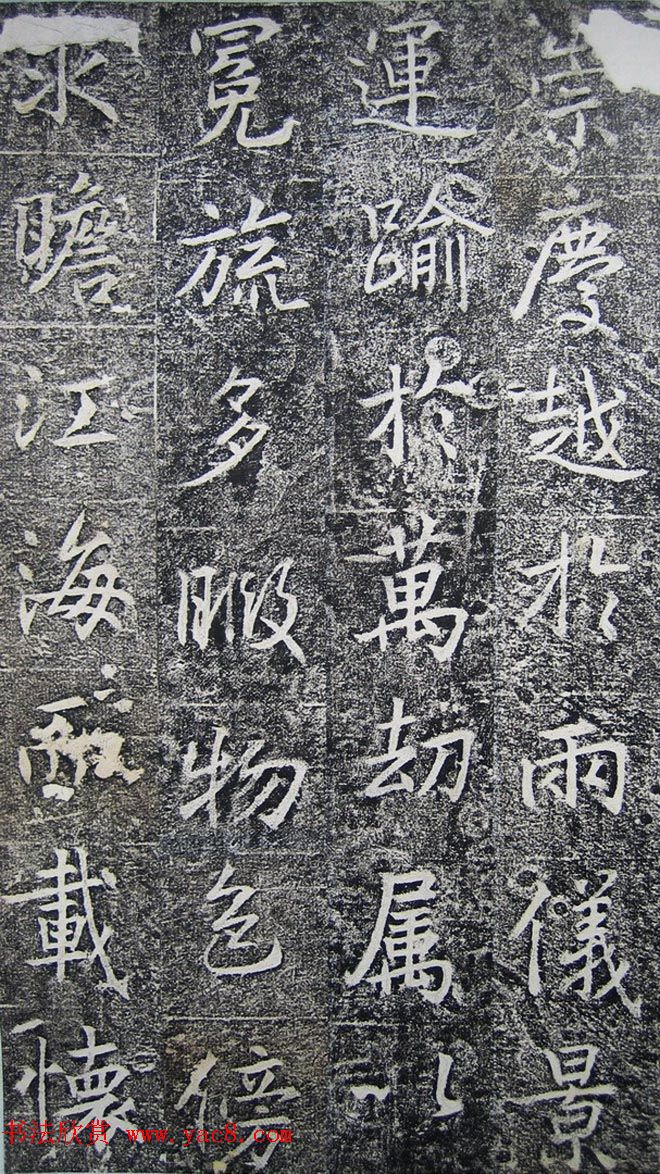 崇慶越於兩儀景
運踰於萬劫属以
冕旒多暇物色傍
求瞻江海而載懷
书法欣赏 www.yac8.com